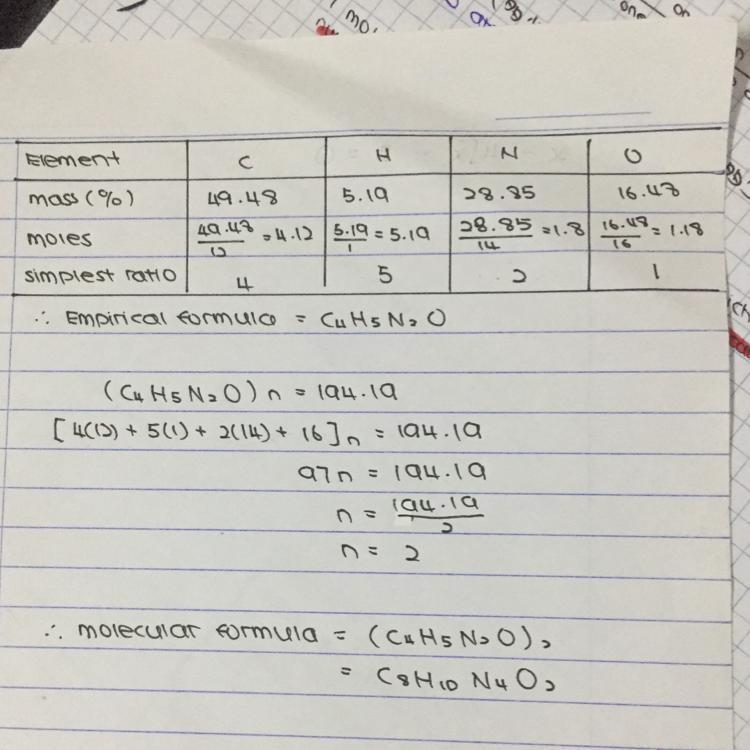 Element C H N O
mass (%) 49.48 5.19 28.85 16.48
moles 49.48/12 = 4.12 5.19/1 = 5.19 28.85/14 = 1.8 16.48/16 = 1.18
simplest ratio 4 5 2 1
∴ Empirical formula = C4H5N2O
(C4H5N2O)n = 194.19
[4(12) + 5(1) + 2(14) + 16]n = 194.19
97n = 194.19
n = 194.19/2
n = 2
∴ molecular formula = (C4H5N2O)2
= C8H10N4O2